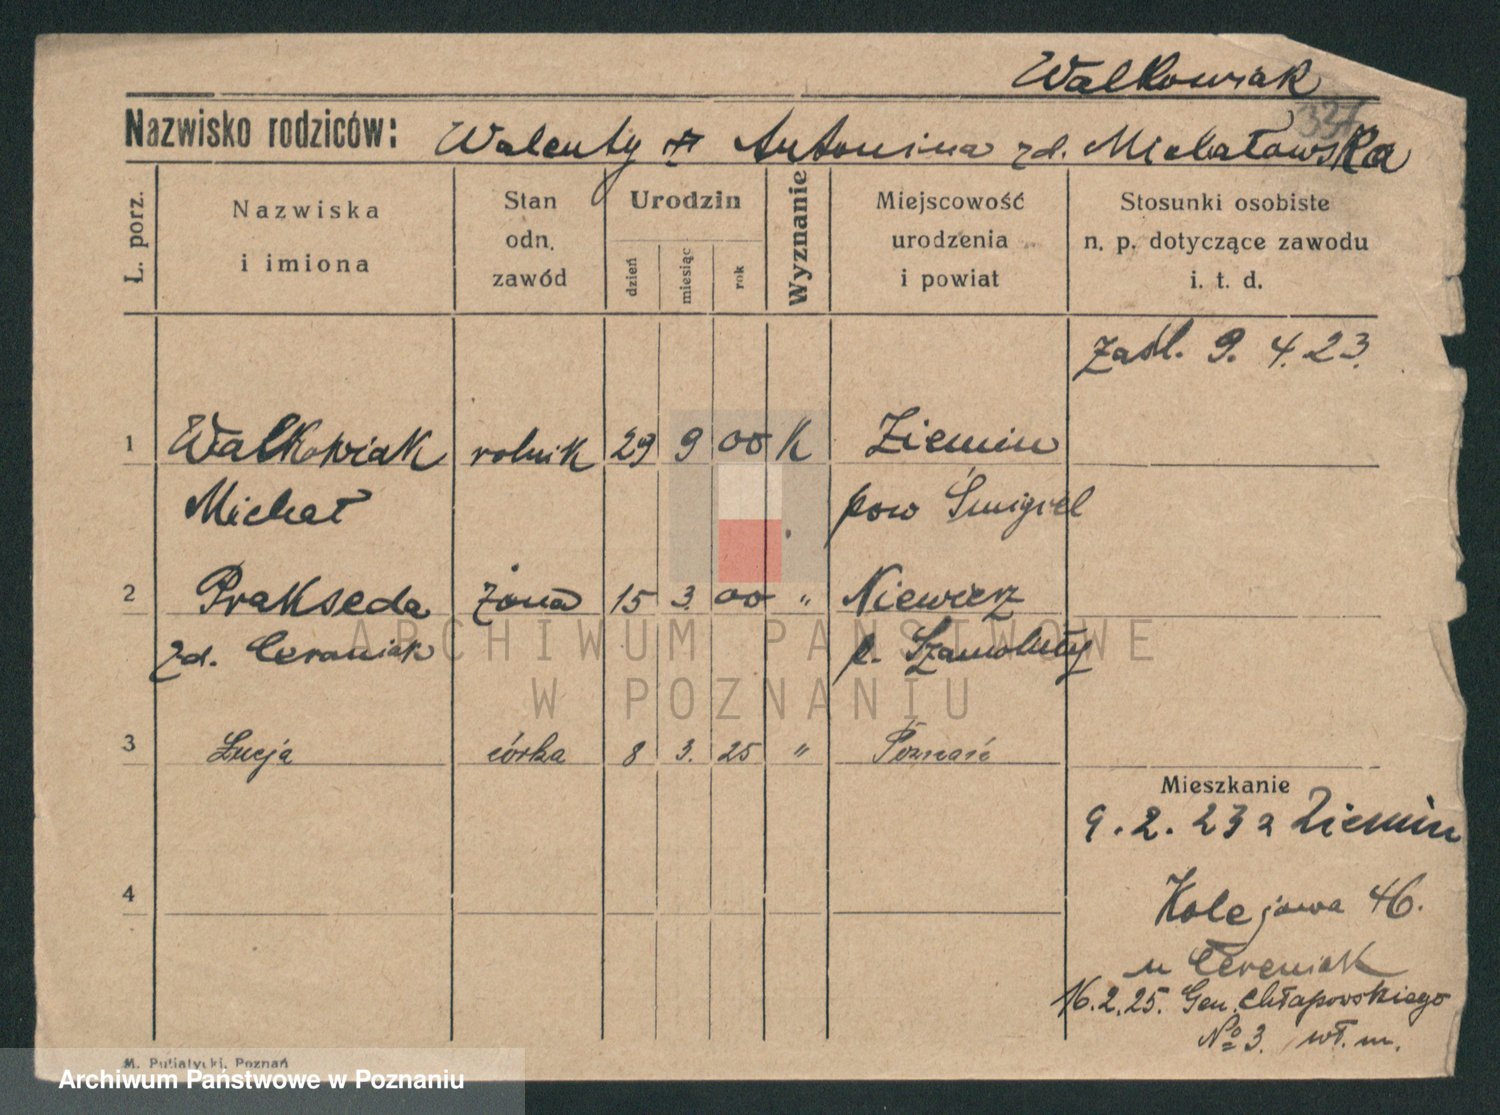 Walkowiak
337
Nazwisko rodziców: Walenty + Antonina zd. Michałowska
Ł. porz.
Nazwiska
i imiona
Stan
odn.
zawód
Urodzin
dzień
miesiąc
rok
Wyznanie
Miejscowość
urodzenia
i powiat
Stosunki osobiste
n. p. dotyczące zawodu
i. t. d.
zaśl. 9. 4. 23.
1 Walkowiak rolnik 29 9 00 K Ziemin
Michał pow Śmigiel
2 Prakseda żona 15 3. 00 " Niewierz
zd. Ceraniak p. Szamotuły
ARCHIWUM PAŃSTWOWE
W POZNANIU
3 Łucja córka 8 3. 25 " Poznań
Mieszkanie
9. 2. 23 z Ziemin
4
Kolejowa 46.
u Cereniak
16.2.25. Gen. Chłapowskiego
No 3. wł. m.
M. Putiatycki, Poznań
Archiwum Państwowe w Poznaniu